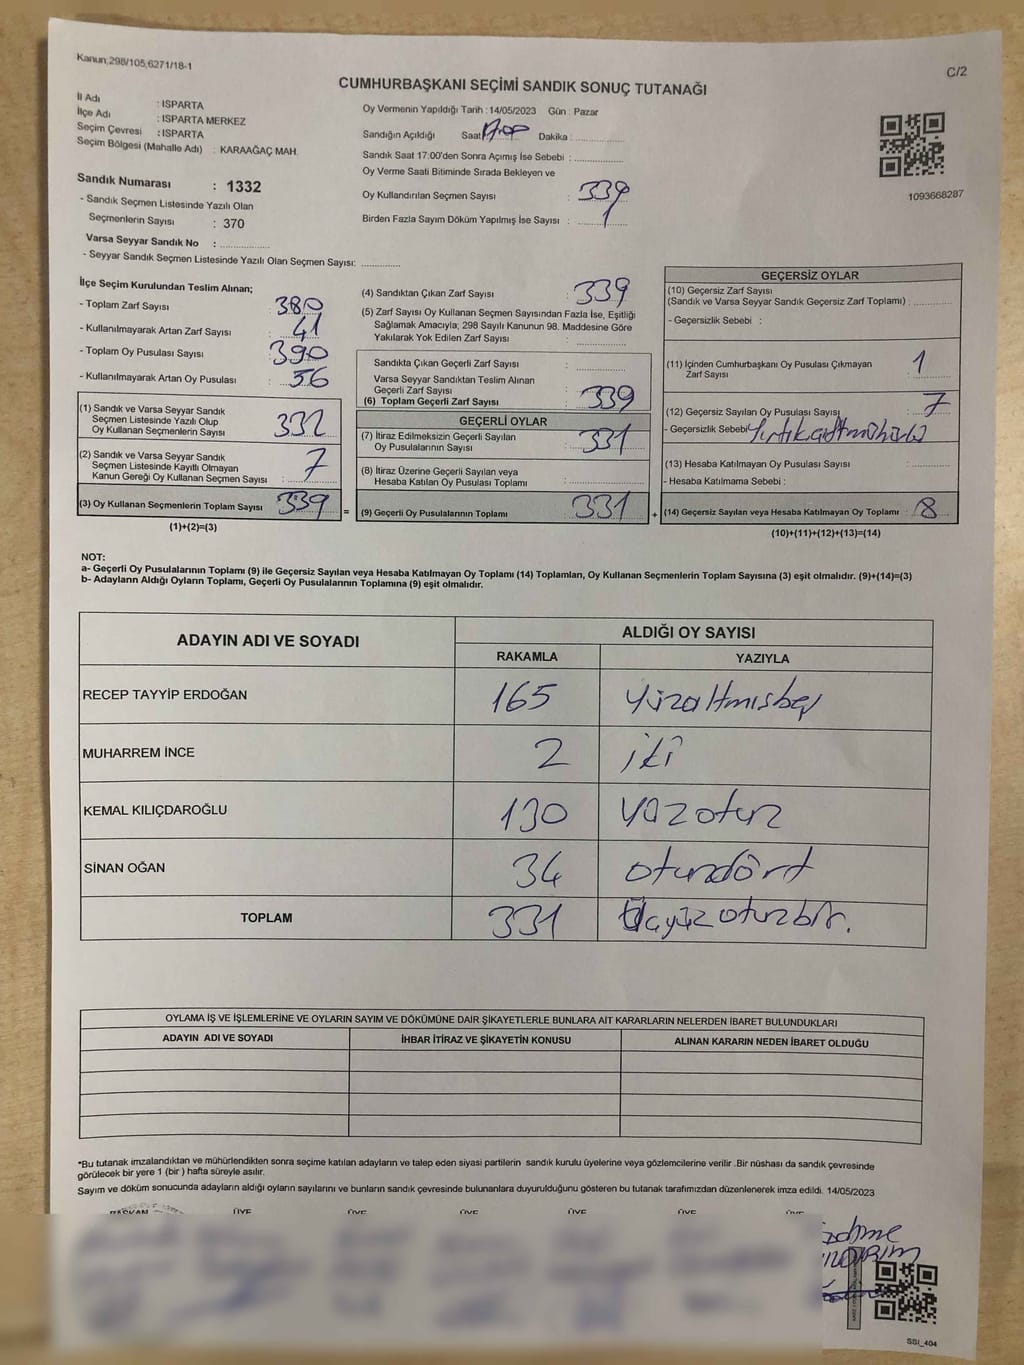 Kanun,298/105,6271/18-1
C/2
CUMHURBAŞKANI SEÇİMİ SANDIK SONUÇ TUTANAĞI
İl Adı : ISPARTA
İlçe Adı : ISPARTA MERKEZ
Seçim Çevresi : ISPARTA
Seçim Bölgesi (Mahalle Adı) : KARAAĞAÇ MAH.
Sandık Numarası : 1332
- Sandık Seçmen Listesinde Yazılı Olan
Seçmenlerin Sayısı : 370
Varsa Seyyar Sandık No : ..............
- Seyyar Sandık Seçmen Listesinde Yazılı Olan Seçmen Sayısı: ...........
Oy Vermenin Yapıldığı Tarih : 14/05/2023 Gün : Pazar
Sandığın Açıldığı Saat 17:00 Dakika : ..............
Sandık Saat 17:00'den Sonra Açımış İse Sebebi : ..............
Oy Verme Saati Bitiminde Sırada Bekleyen ve
Oy Kullandırılan Seçmen Sayısı : 339
Birden Fazla Sayım Döküm Yapılmış İse Sayısı : 1
1093668287
İlçe Seçim Kurulundan Teslim Alınan;
- Toplam Zarf Sayısı : 380
- Kullanılmayarak Artan Zarf Sayısı : 41
- Toplam Oy Pusulası Sayısı : 390
- Kullanılmayarak Artan Oy Pusulası : 56
(1) Sandık ve Varsa Seyyar Sandık
Seçmen Listesinde Yazılı Olup
Oy Kullanan Seçmenlerin Sayısı 332
(2) Sandık ve Varsa Seyyar Sandık
Seçmen Listesinde Kayıtlı Olmayan
Kanun Gereği Oy Kullanan Seçmen Sayısı : 7
(3) Oy Kullanan Seçmenlerin Toplam Sayısı 339 =
(1)+(2)=(3)
(4) Sandıktan Çıkan Zarf Sayısı : 339
(5) Zarf Sayısı Oy Kullanan Seçmen Sayısından Fazla İse, Eşitliği
Sağlamak Amacıyla; 298 Sayılı Kanunun 98. Maddesine Göre
Yakılarak Yok Edilen Zarf Sayısı : ..............
Sandıkta Çıkan Geçerli Zarf Sayısı : ..............
Varsa Seyyar Sandıktan Teslim Alınan
Geçerli Zarf Sayısı : ..............
(6) Toplam Geçerli Zarf Sayısı : 339
GEÇERLİ OYLAR
(7) İtiraz Edilmeksizin Geçerli Sayılan
Oy Pusulasının Sayısı : 331
(8) İtiraz Üzerine Geçerli Sayılan veya
Hesaba Katılan Oy Pusulası Toplamı : ..............
(9) Geçerli Oy Pusulalarının Toplamı : 331 +
GEÇERSİZ OYLAR
(10) Geçersiz Zarf Sayısı
(Sandık ve Varsa Seyyar Sandık Geçersiz Zarf Toplamı) : ..........
- Geçersizlik Sebebi :
(11) İçinden Cumhurbaşkanı Oy Pusulası Çıkmayan
Zarf Sayısı : 1
(12) Geçersiz Sayılan Oy Pusulası Sayısı : 7
- Geçersizlik Sebebi
(13) Hesaba Katılmayan Oy Pusulası Sayısı : ..........
- Hesaba Katılmama Sebebi :
(14) Geçersiz Sayılan veya Hesaba Katılmayan Oy Toplamı : 8
(10)+(11)+(12)+(13)=(14)
NOT:
a- Geçerli Oy Pusulalarının Toplamı (9) ile Geçersiz Sayılan veya Hesaba Katılmayan Oy Toplamı (14) Toplamları, Oy Kullanan Seçmenlerin Toplam Sayısına (3) eşit olmalıdır. (9)+(14)=(3)
b- Adayların Aldığı Oyların Toplamı, Geçerli Oy Pusulalarının Toplamına (9) eşit olmalıdır.
ADAYIN ADI VE SOYADI ALDIĞI OY SAYISI
RAKAMLA YAZIYLA
RECEP TAYYİP ERDOĞAN 165 Yüzaltmışbeş
MUHARREM İNCE 2 iki
KEMAL KILIÇDAROĞLU 130 yüzotuz
SİNAN OĞAN 34 otuzdört
TOPLAM 331 Üçyüzotuzbir.
OYLAMA İŞ VE İŞLEMLERİNE VE OYLARIN SAYIM VE DÖKÜMÜNE DAİR ŞİKAYETLERLE BUNLARA AİT KARARLARIN NELERDEN İBARET BULUNDUKLARI
ADAYIN ADI VE SOYADI İHBAR İTİRAZ VE ŞİKAYETİN KONUSU ALINAN KARARIN NEDEN İBARET OLDUĞU
*Bu tutanak imzalandıktan ve mühürlendikten sonra seçime katılan adayların ve talep eden siyasi partilerin sandık kurulu üyelerine veya gözlemcilerine verilir .Bir nüshası da sandık çevresinde
görülecek bir yere 1 (bir ) hafta süreyle asılır.
Sayım ve döküm sonucunda adayların aldığı oyların sayılarını ve bunların sandık çevresinde bulunanlara duyurulduğunu gösteren bu tutanak tarafımızdan düzenlenerek imza edildi. 14/05/2023
BAŞKAN ÜYE ÜYE ÜYE ÜYE ÜYE ÜYE
SSI_404